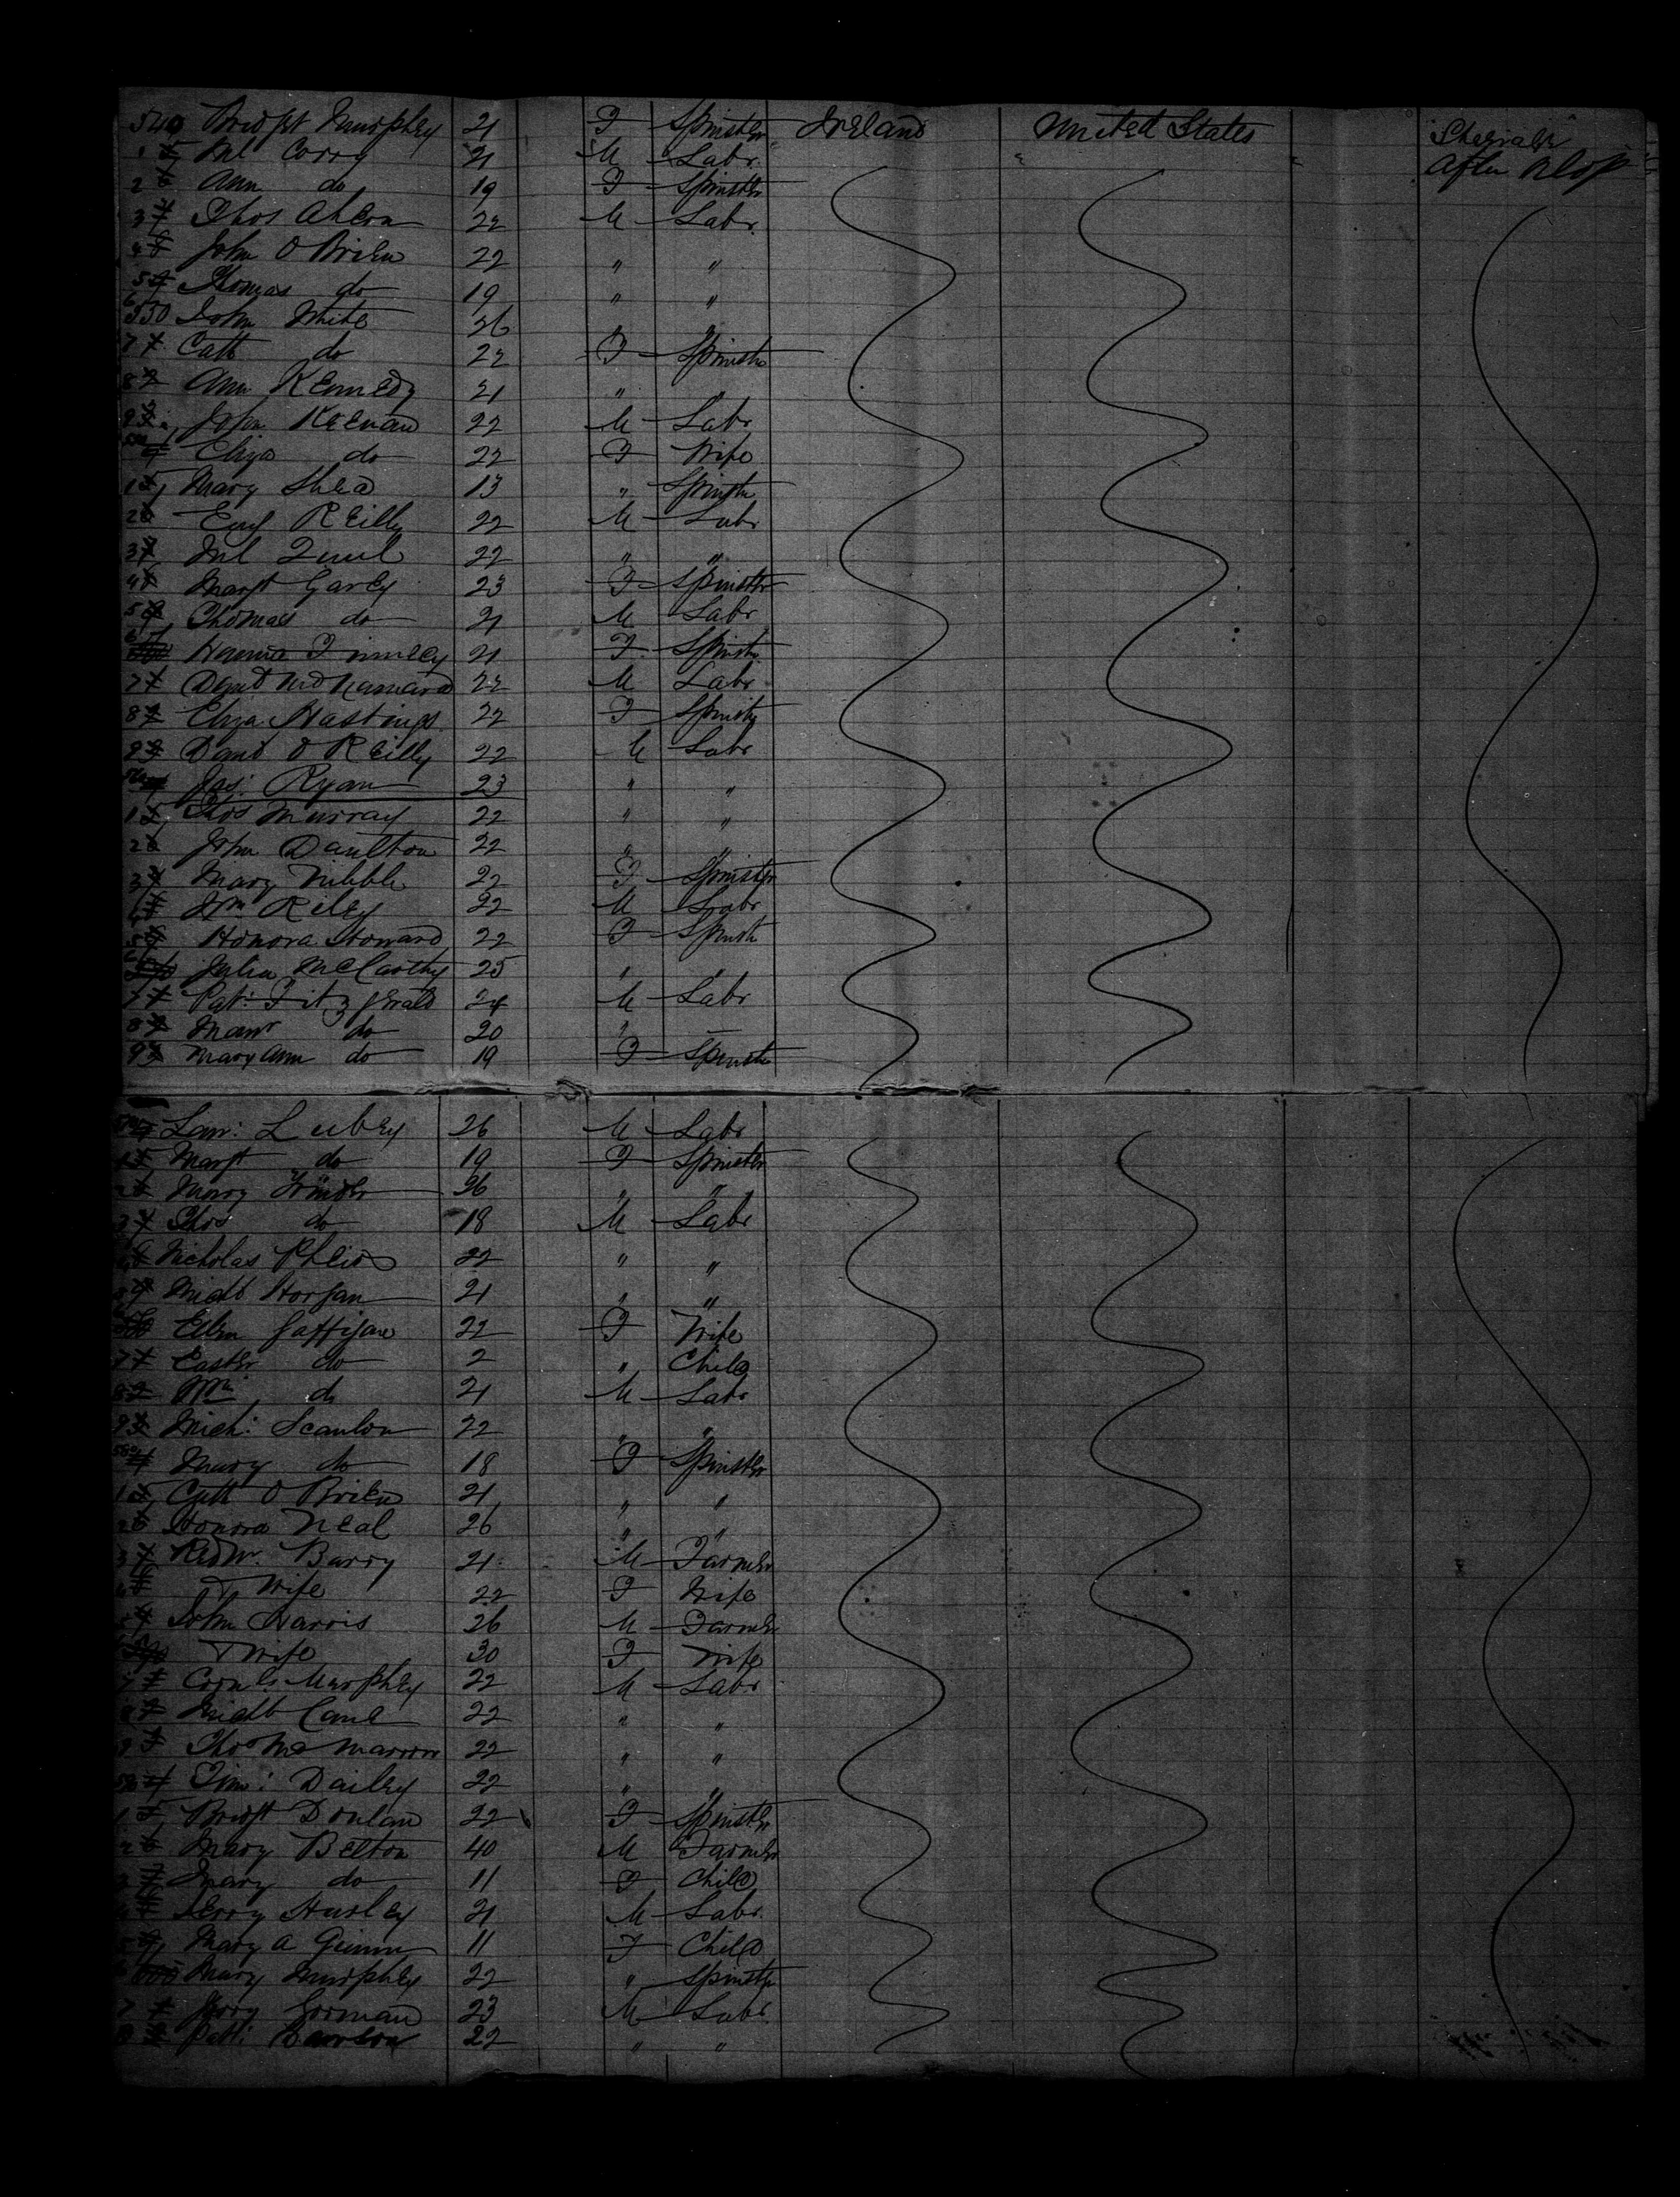 540 Bridgt Murphey 21 F Spinster Ireland United States "Steerage"
1 Ml Corry 21 M Labr " " After
2 Ann do 19 F Spinster
3 Thos Ahern 22 M Labr
4 John O Brien 22 " "
5 Thomas do 19 " "
6 John White 26 " "
7 Cath do 22 F Spinstr
8 Ann Kennedy 21 " "
9 John Keenan 22 M Labr
Eliza do 22 F Wife
1 Mary Shea 13 " Spinstr
2 Reilly 22 M Labr
3 Ml 22 " "
4 Margt Garey 23 F Spinster
5 Thomas do 21 M Labr
6 21 F Spinstr
7 22 M Labr
8 Eliza Hastings 22 F Spinstr
9 O Reilly 22 M Labr
Jas: Ryan 23 " "
1 Thos Murray 22 " "
2 John Daulton 22 " "
3 Mary Nibble 22 F Spinster
4 Wm Riley 22 M Labr
5 Honora Howard 22 F Spinstr
6 Julia McCarthy 25 " "
7 Pat: Fitzgerald 24 M Labr
8 do 20 "
9 Mary Ann do 19 F Spinstr
Law: Lubey 26 M Labr
1 Margt do 19 F Spinster
2 Mary 26 " "
3 Thos do 18 M Labr
4 Nicholas 22 " "
5 Michl Horgan 21 " "
6 Ellen Gaffigan 22 F Wife
7 Easter do 2 " Child
8 Wm do 21 M Labr
9 Mich: Scanlon 22 " "
580 Mary do 18 F Spinster
1 Cath O Brien 21 " "
2 Honora Neal 26 " "
3 Barry 21 M Farmer
4 & Wife 22 F Wife
5 John Harris 26 M Farmer
& Wife 30 F Wife
7 Corns Murphey 22 M Labr
8 Michl Cane 22 " "
9 Thos 22 " "
Tim: Dailey 22 " "
1 Bridgt Donlan 22 F Spinster
2 Mary Belton 40 M Farmer
3 Mary do 11 F Child
4 Jerry Hurley 21 M Labr
5 Mary A 11 F Child
6 Mary Murphey 22 " Spinstr
7 Gorman 23 M Labr
8 Patk: 22 " "